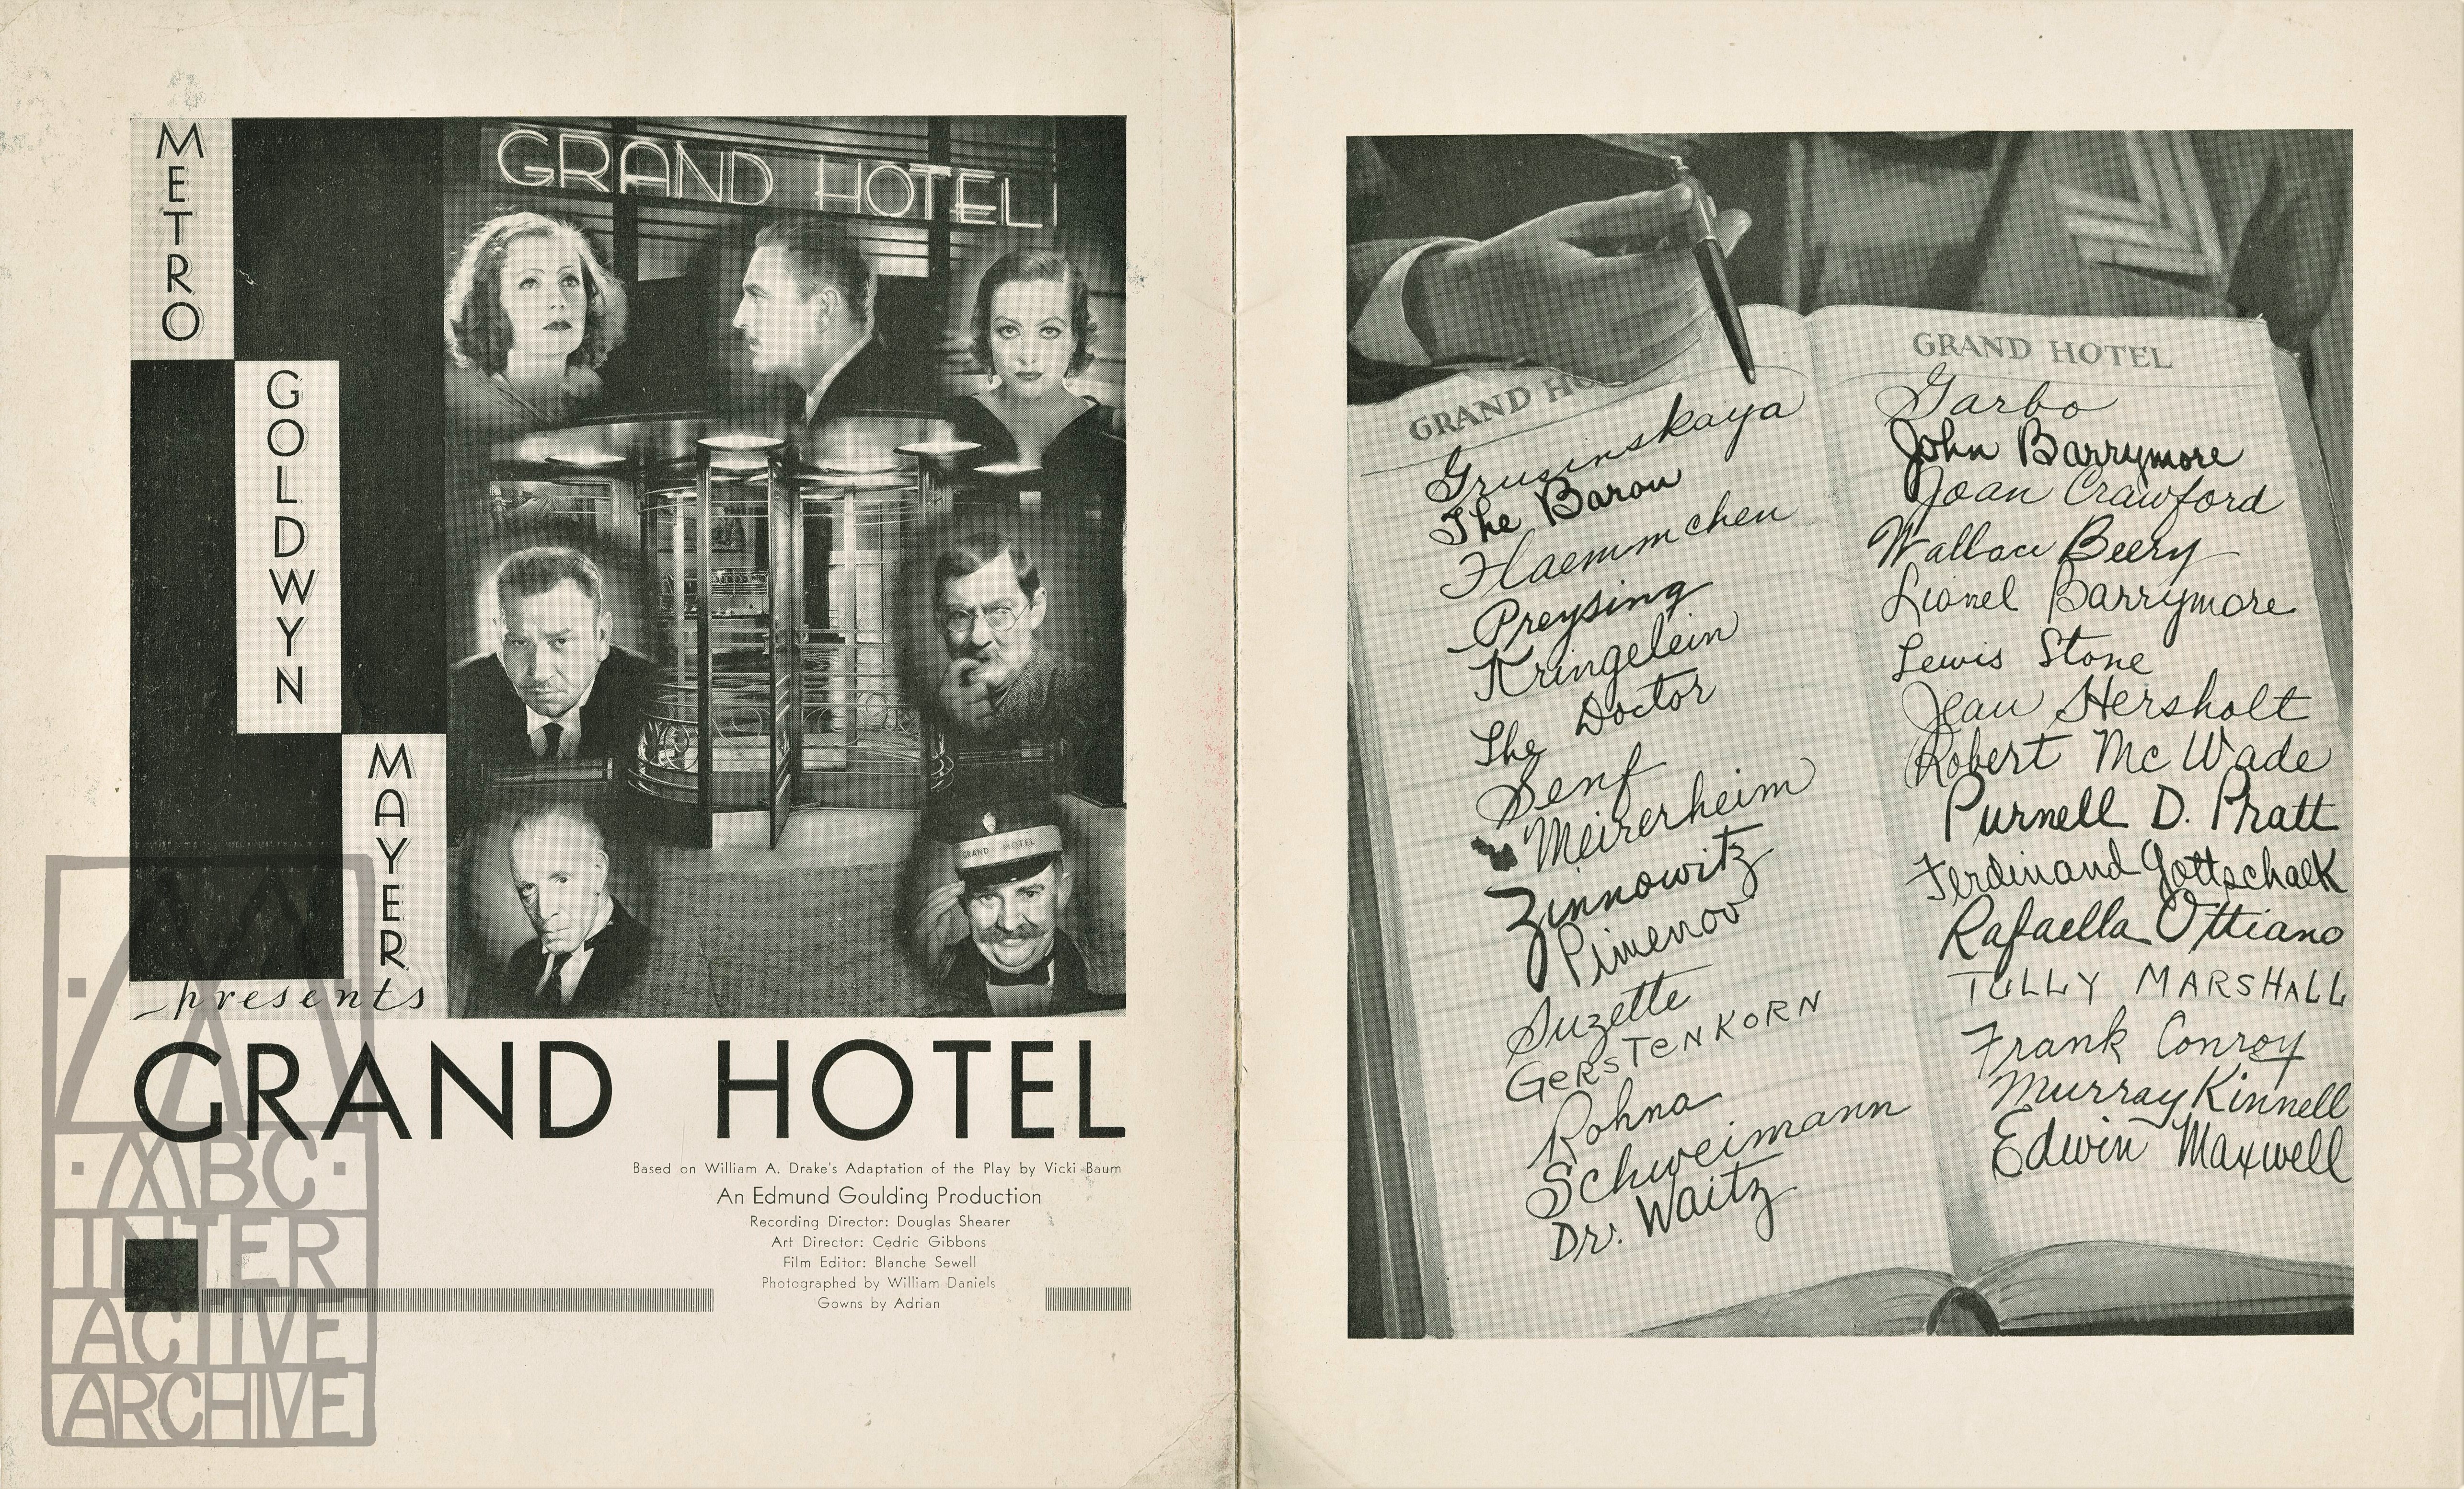 METRO
GOLDWYN
MAYER
presents
GRAND HOTEL
GRAND HOTEL
GRAND HOTEL
Based on William A. Drake's Adaptation of the Play by Vicki Baum
An Edmund Goulding Production
Recording Director: Douglas Shearer
Art Director: Cedric Gibbons
Film Editor: Blanche Sewell
Photographed by William Daniels
Gowns by Adrian
ABC
INTER
ACTIVE
ARCHIVE
GRAND HO
Grusinskaya
The Baron
Flaemmchen
Preysing
Kringelein
The Doctor
Senf
Meirerheim
Zinnowitz
Pimenov
Suzette
GERSTENKORN
Rohna
Schweimann
Dr. Waitz
GRAND HOTEL
Garbo
John Barrymore
Joan Crawford
Wallace Beery
Lionel Barrymore
Lewis Stone
Jean Hersholt
Robert McWade
Purnell D. Pratt
Ferdinand Gottschalk
Rafaella Ottiano
TULLY MARSHALL
Frank Conroy
Murray Kinnell
Edwin Maxwell